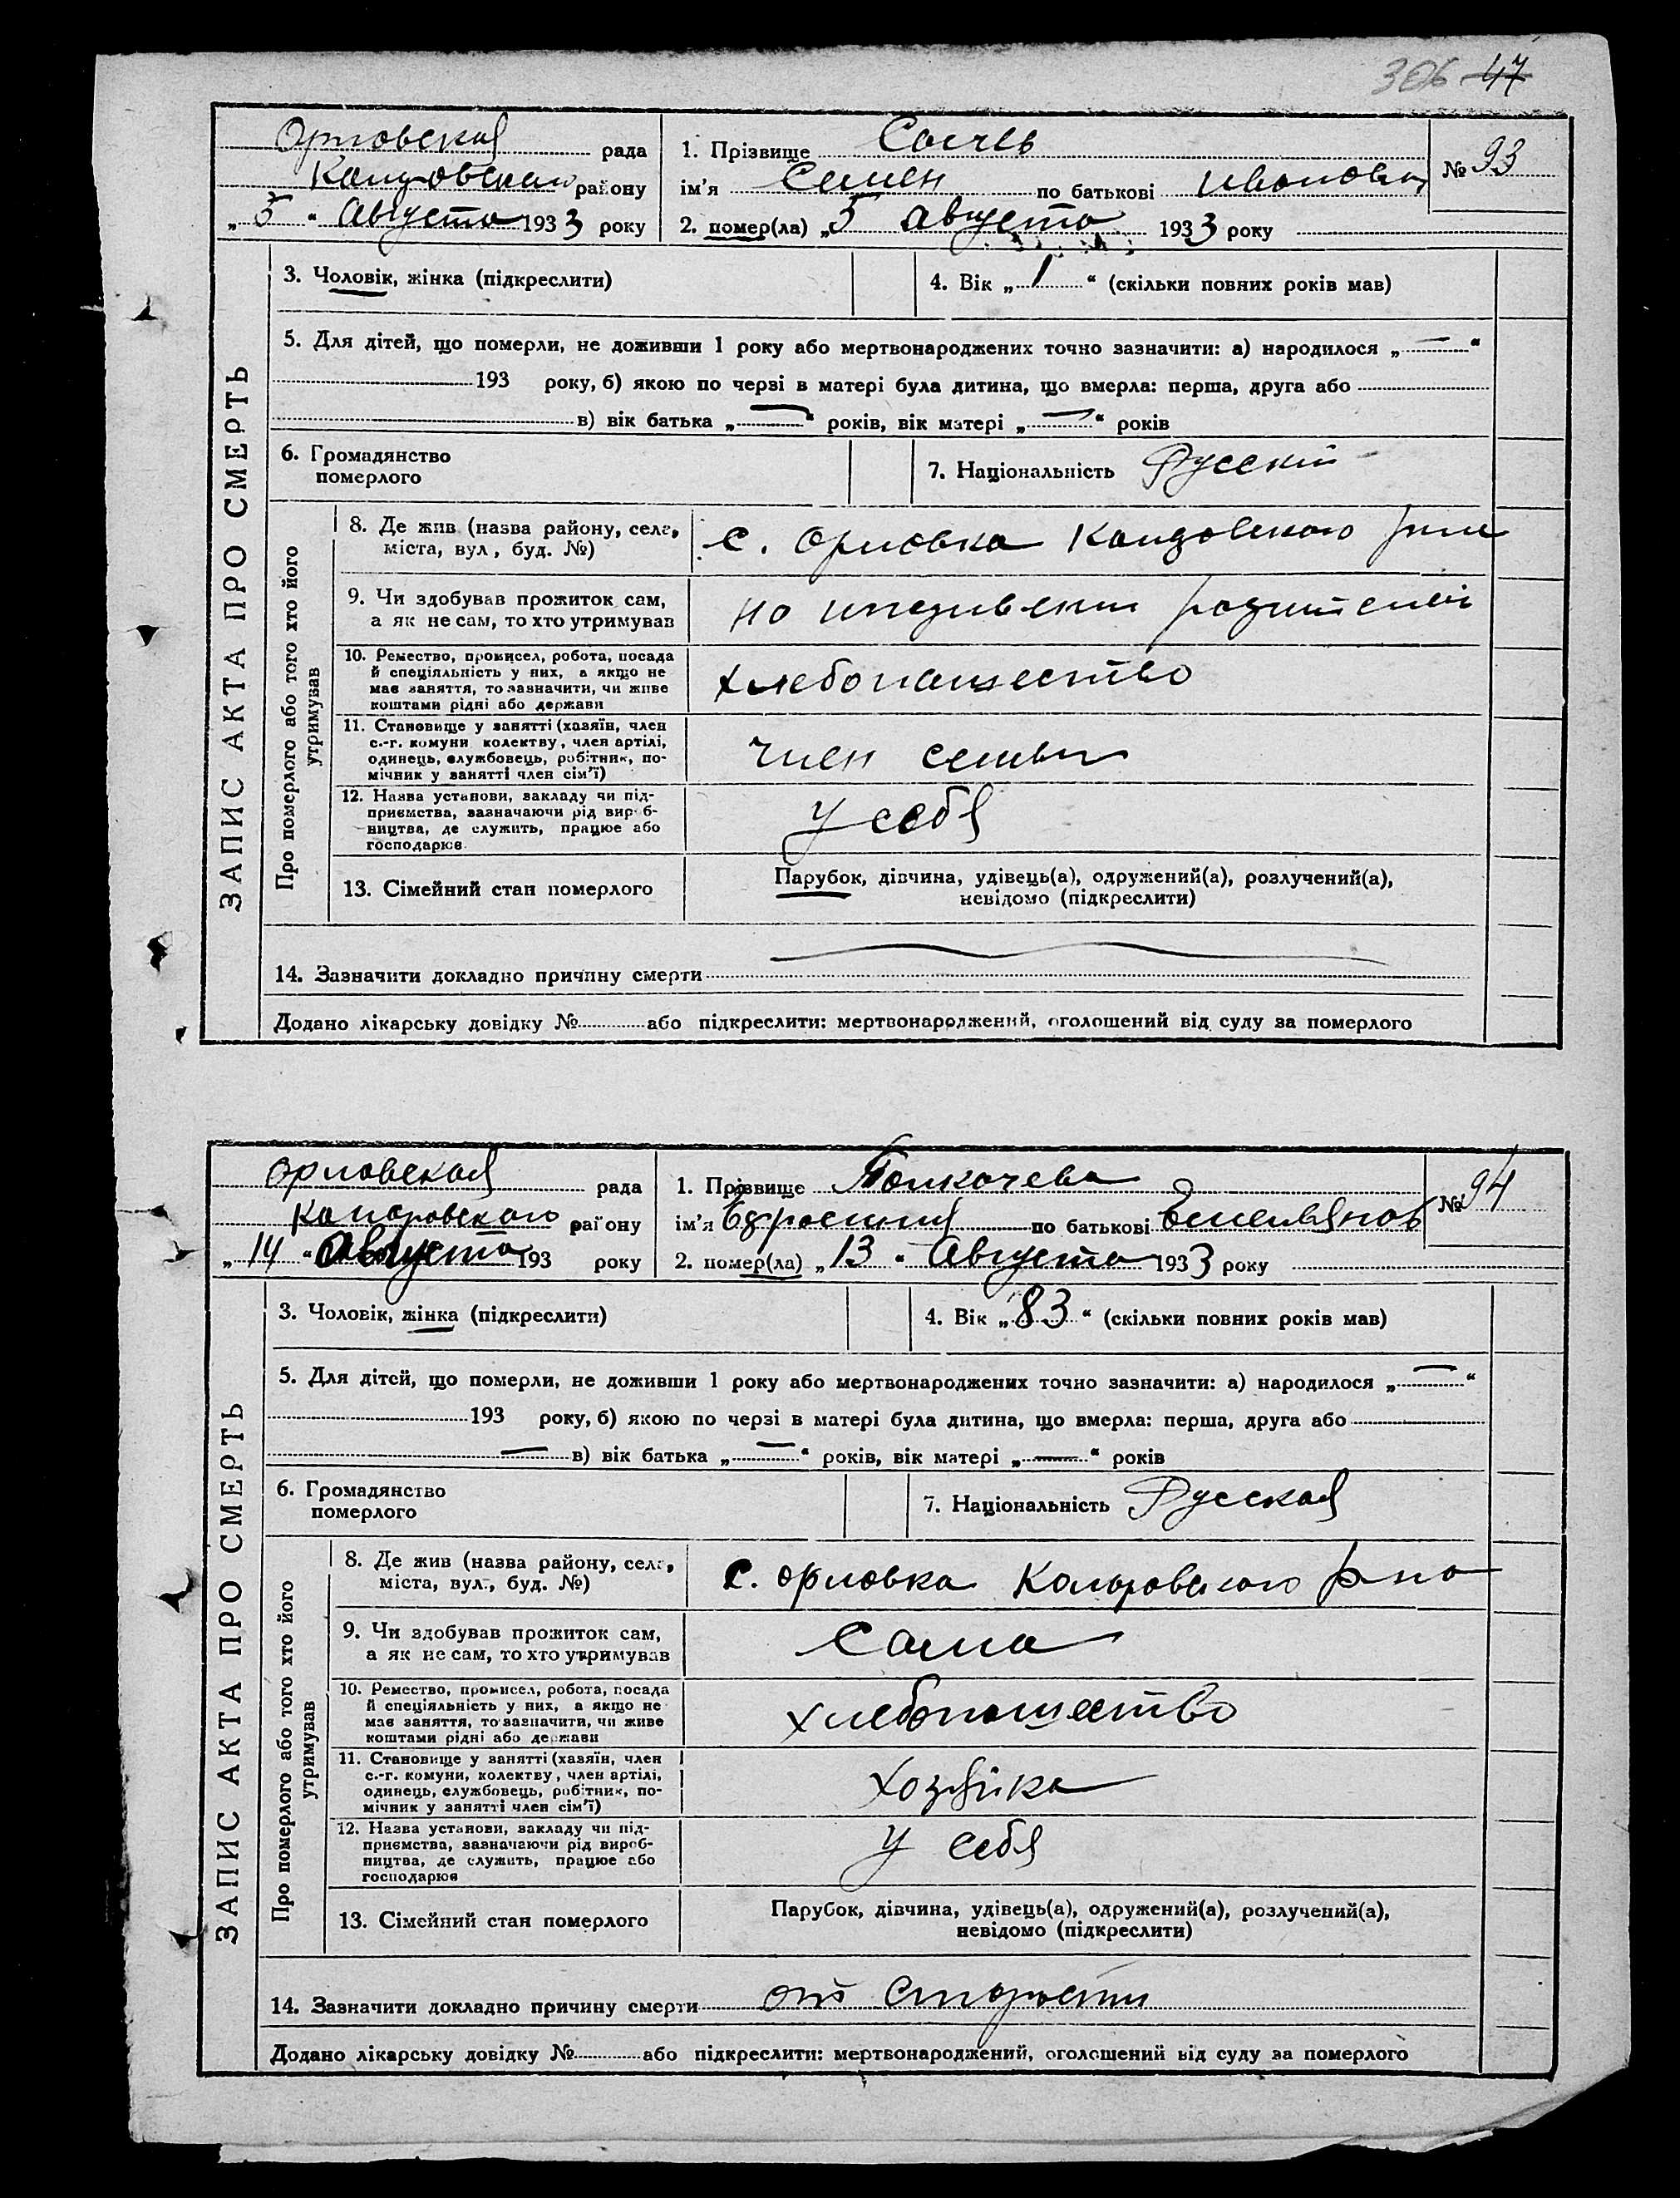 306 47
Орловская рада
района
„ 5 “ Августа 1933 року
1. Прізвище
ім’я Семен по батькові Иванович
2. помер(ла) „ 5 августа 1933 року
№ 93
ЗАПИС АКТА ПРО СМЕРТЬ
3. Чоловік, жінка (підкреслити)
4. Вік „ 1 “ (скільки повних років мав)
5. Для дітей, що померли, не доживши 1 року або мертвонароджених точно зазначити: а) народилося „ — “
193 року, б) якою по черзі в матері була дитина, що вмерла: перша, друга або
в) вік батька „ — “ років, вік матері „ — “ років
6. Громадянство
померлого
7. Національність Русский
Про померлого або того хто його
утримував
8. Де жив (назва району, села,
міста, вул., буд. №)
с. Орловка
9. Чи здобував прожиток сам,
а як не сам, то хто утримував
на иждивении родителей
10. Ремество, промисел, робота, посада
й спеціяльність у них, а якщо не
має заняття, то зазначити, чи живе
коштами рідні або держави
хлебопашество
11. Становище у занятті (хазяїн, член
с.-г. комуни, колективу, член артілі,
одинець, службовець, робітник, по-
мічник у занятті член сім’ї)
член семьи
12. Назва установи, закладу чи під-
приємства, зазначаючи рід вироб-
ництва, де служить, працює або
господарює
у себя
13. Сімейний стан померлого
Парубок, дівчина, удівець(а), одружений(а), розлучений(а),
невідомо (підкреслити)
14. Зазначити докладно причину смерти
Додано лікарську довідку № або підкреслити: мертвонароджений, оголошений від суду за померлого
Орловская рада
району
„ 14 “ Августа 193 року
1. Прізвище Толкачева
ім’я Ефросиния по батькові Емельянов
2. помер(ла) „ 13 “ Августа 1933 року
№ 94
ЗАПИС АКТА ПРО СМЕРТЬ
3. Чоловік, жінка (підкреслити)
4. Вік „ 83 “ (скільки повних років мав)
5. Для дітей, що померли, не доживши 1 року або мертвонароджених точно зазначити: а) народилося „ — “
193 року, б) якою по черзі в матері була дитина, що вмерла: перша, друга або
— в) вік батька „ — “ років, вік матері „ — “ років
6. Громадянство
померлого
7. Національність Русская
Про померлого або того хто його
утримував
8. Де жив (назва району, села,
міста, вул., буд. №)
с. Орловка
9. Чи здобував прожиток сам,
а як не сам, то хто утримував
Сама
10. Ремество, промисел, робота, посада
й спеціяльність у них, а якщо не
має заняття, то зазначити, чи живе
коштами рідні або держави
хлебопашество
11. Становище у занятті (хазяїн, член
с.-г. комуни, колективу, член артілі,
одинець, службовець, робітник, по-
мічник у занятті член сім’ї)
хозяйка
12. Назва установи, закладу чи під-
приємства, зазначаючи рід вироб-
ництва, де служить, працює або
господарює
у себя
13. Сімейний стан померлого
Парубок, дівчина, удівець(а), одружений(а), розлучений(а),
невідомо (підкреслити)
14. Зазначити докладно причину смерти от старости
Додано лікарську довідку № або підкреслити: мертвонароджений, оголошений від суду за померлого